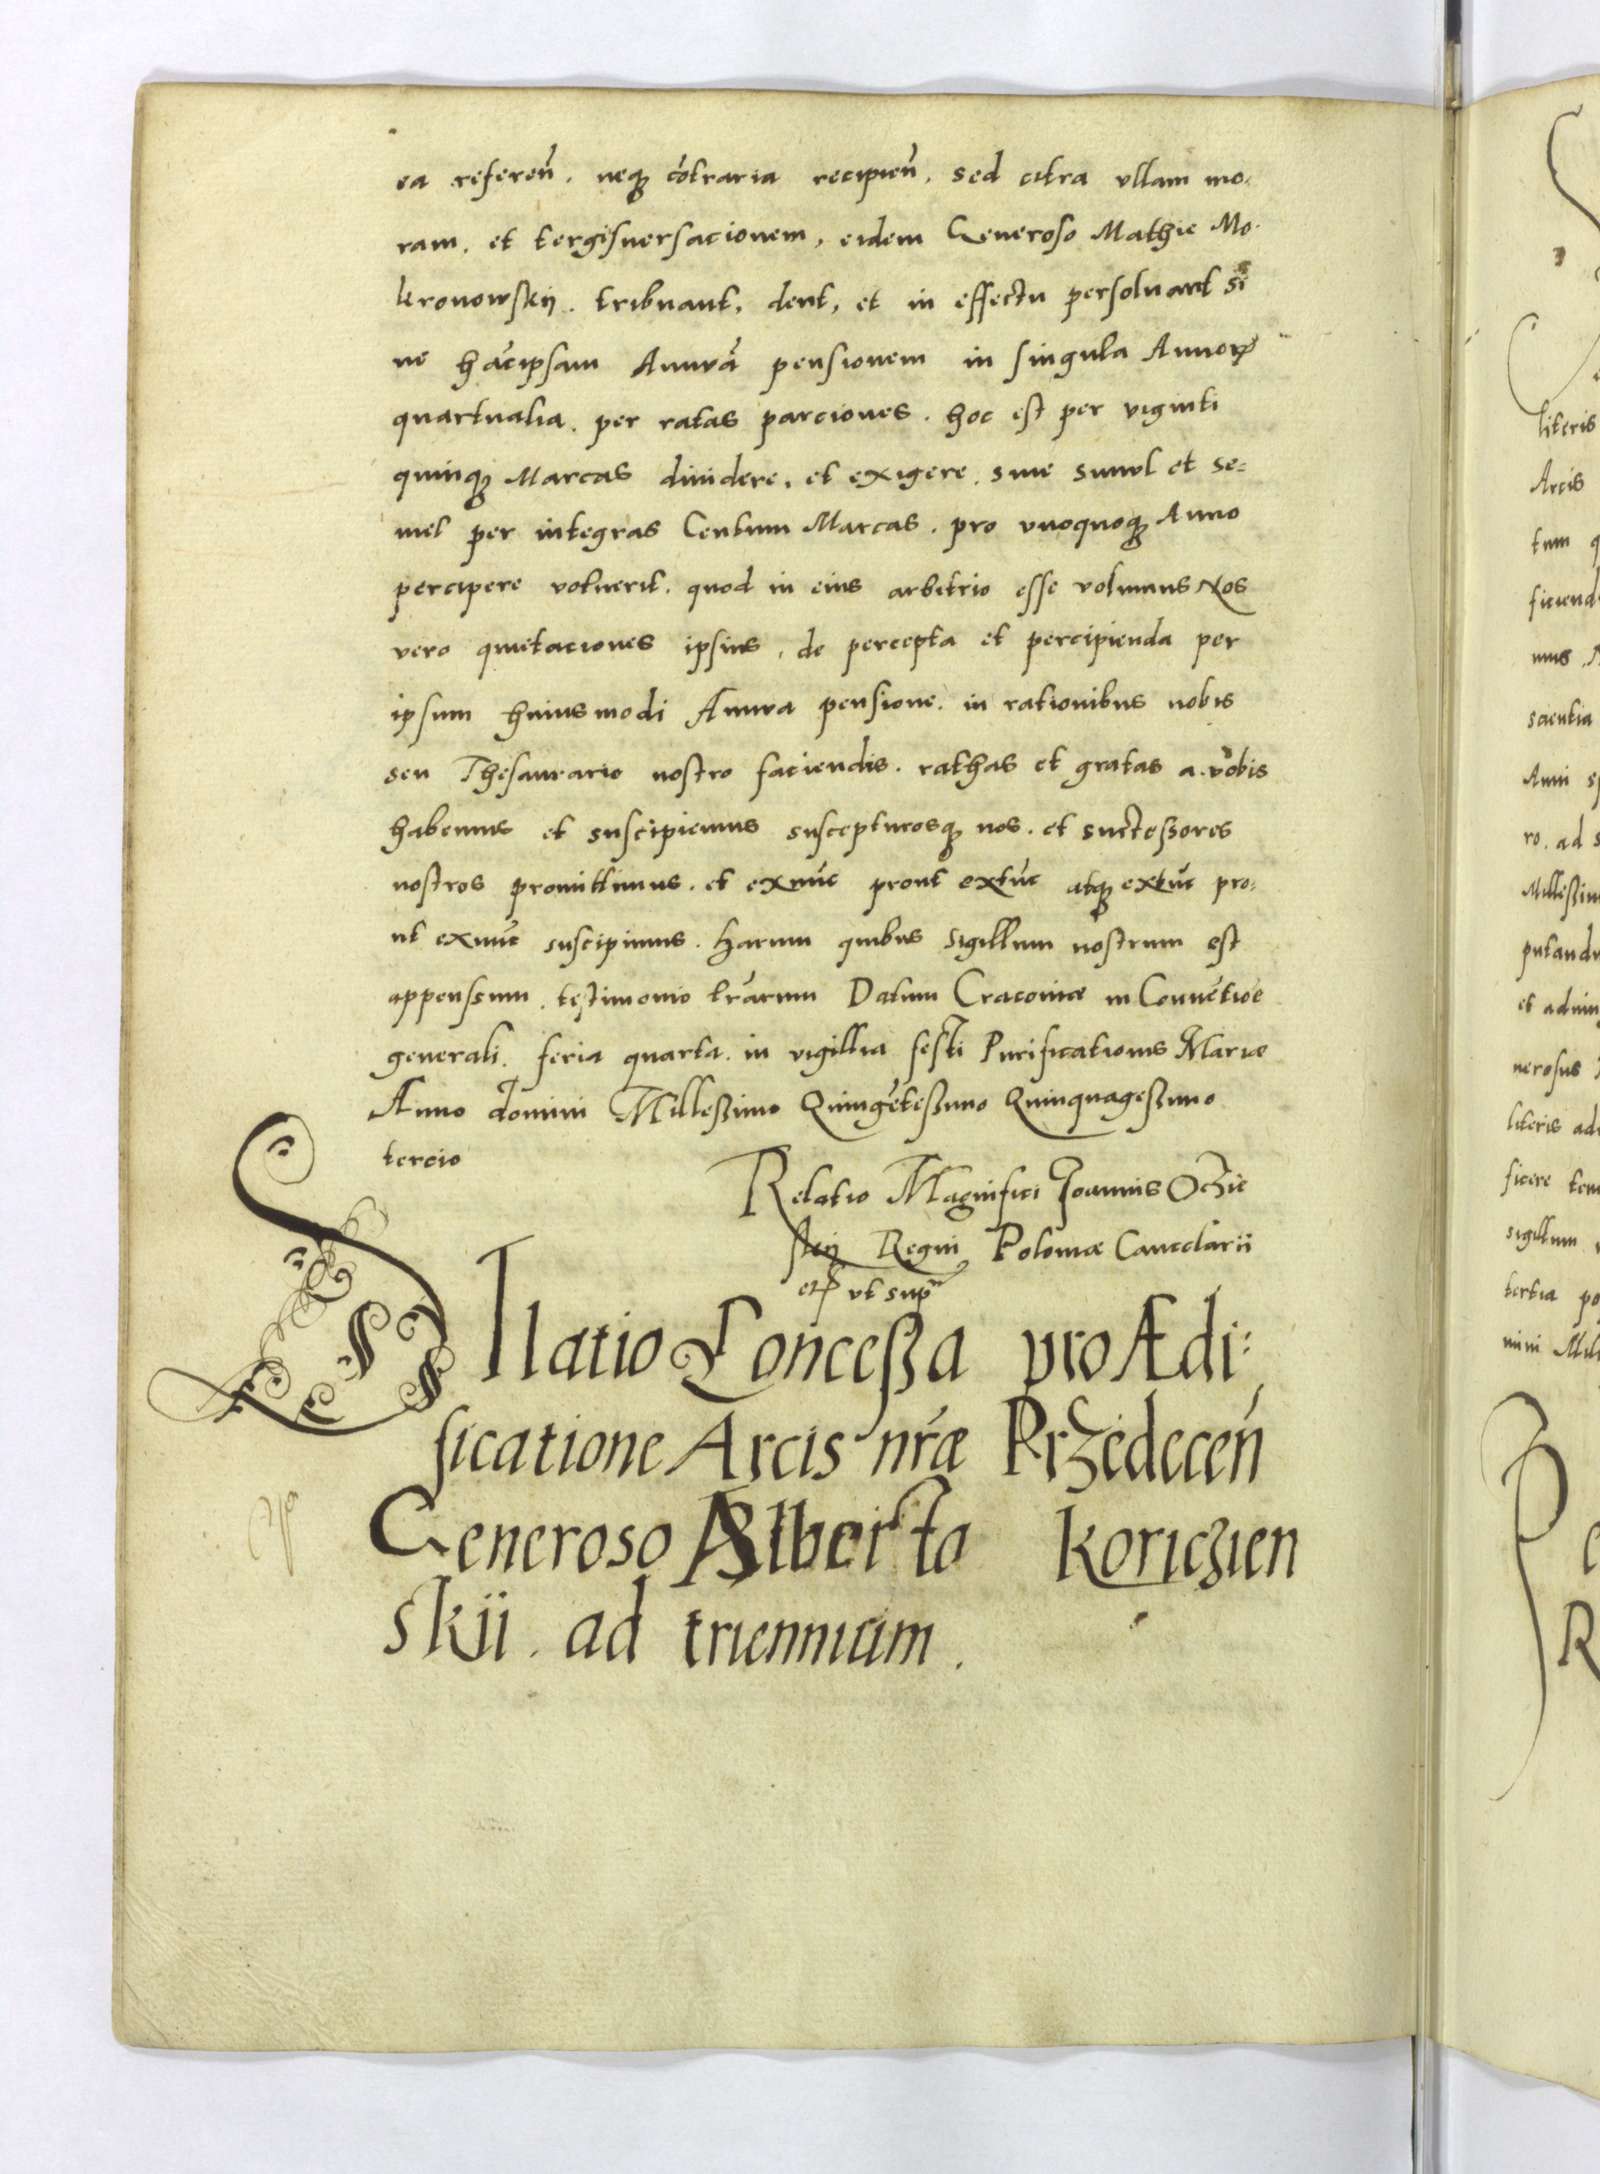 ea referen̄. neqꝫ cōtraria recipien̄. sed citra vllam mo-
ram. et tergisuersacionem, eidem Generoso Mathie Mo-
kronowskij. tribuant, dent, et in effectu persoluant si
ne hācipsam Annuā pensionem in singula Annoꝝ
quartualia. per ratas parciones. hoc est per viginti
quinqꝫ Marcas diuidere, et exigere. siue simul et se=
mel per integras Centum Marcas. pro vnoquoqꝫ Anno
percipere voluerit. quod in eius arbitrio esse volumus Nos
vero quietaciones ipsius, de percepta et percipienda per
ipsum huiusmodi Annua pensione. in rationibus nobis
seu Thesaurario nostro faciendis. rathas et gratas a. vobis
habemus et suscipiemus suscepturosqꝫ nos. et successores
nostros promittimus. et exnūc prout extūc atqꝫ extūc pro=
ut exnūc suscipimus. Harum quibus sigillum nostrum est
appenssum. testimonio lrārum Datum Cracouiæ in Conuētioē
generali. feria quarta. in vigillia festi Purificationis Mariæ
Anno domini Millesßimo Quingētesßimo Quinquagesßimo
tercio
Relatio Magnifici Joannis Oczie
skij Regni Poloniæ Cancelarii
etc vt supra
Illatio Conceßa pro Ædi:
ficatione Arcis nr̄æ Przedecen̄
Generoso Alberto Koriczien
skii. ad triennium.
literis
Arcis
tum q
ficiend
mus
saentia
Anni sp
ro. ad s
Milleßim
putandu
et adnim
nerosus
literis ad
ficere tem
sigillum
tertia po
mini Mil